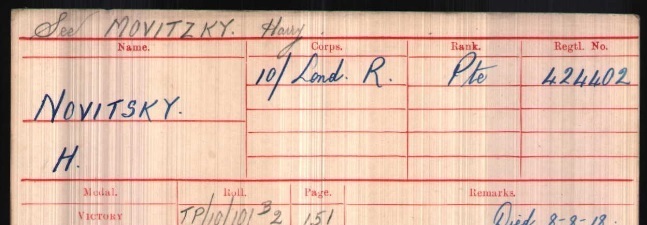 See MOVITZKY. Harry.
Name. Corps. Rank. Regtl. No.
10/ Lond. R. Pte 424402
NOVITSKY.
H.
Medal. Roll. Page. Remarks.
VICTORY TP/10/101 B2 151 Died 8-8-18.